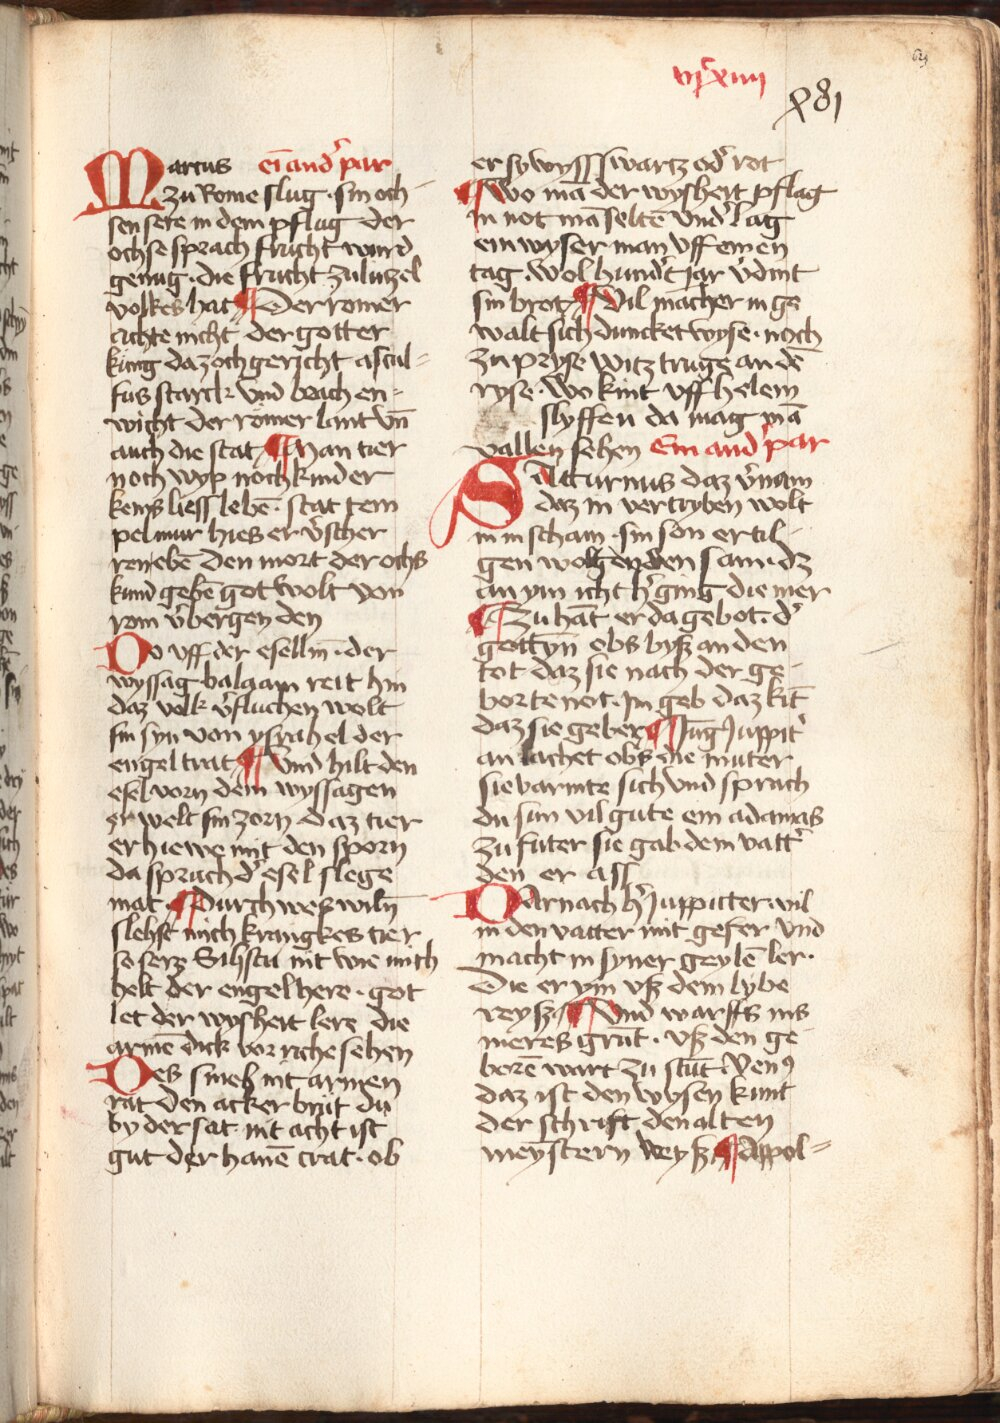 vjͨ xiiii
681
629
Marcus ein and᾽ par
zu Rome slug · sin och
sen sere in dem pflug der
ochse sprach frucht wurd
genug · die frucht zu lutzel
volkes hat ¶ Der romer
achte nicht der gotter
kung daz och gericht ascul⸗
fus starck vnd brach en⸗
wicht der romer lant vn̄
auch die stat ¶ Man tier
noch wyp noch kinder
keins liess lebē · stat tem
pel mur hies er v᾽scher
ren ebē den mort der ochs
kund gebē got wolt von
rom v᾽bergen den
Do vff der esellin̄ · der
wyssag balaam reit hin
daz volk v᾽fluchen wolt
sin syn von ysrahel der
engel trat ¶ Vnd hilt den
esel vorn dem wyssagen
er welt sin zorn daz tier
er hiewe mit den sporn
da sprach d᾽ esel slege
mat · ¶ Durch wes wiln̄
slehst mich krangkes tier
so sere Sihstu nit wie mich
helt der engel here · got
let der wysheit lere die
armē dick vor riche sehen
Des smeh nit armen
rat den acker brut du
by der sat nit acht ist
gut der hanē crat · ob
er sy wyss swartz od᾽ rot
¶ Wo mā der wysheit pflag
In not mā seltē vnd᾽ lag
ein wyser man vff einen
tag · wol hund᾽t jar v᾽dint
sin brot ¶ Vil mācher in ge
walt sich duncket wyse · noch
zu pryse witz truge an dē
ryse · Wo kint vff helem
slyffen da mag mā
vallen sehen Ein and᾽ par
Satturnus daz v᾽nam
daz in vertryben wolt
in in scham · sin son er til⸗
gen wolt den sam · dz
an ym icht h᾽ ging die mer
¶ Zu hāt er da gebot · d᾽
gottyn̄ obs byß an den
tot daz sie nach der ge⸗
borte not · Im geb daz kīt
daz sie geber ¶ Jūg Juppit᾽
an lachet obs die muter
sie barmte sich vnd sprach
du sun vil gute ein adamas
zu futer sie gab dem vatt᾽
den er ass
Darnach h᾽ Juppitter · vil
in den vatter mit gefer vnd
macht in syner geylē ler ·
Die er ym vß dem lybe
reyß ¶ Vnd warffs ins
meres grūt · vß den ge
borē wart zu stūt Venꝰ
daz ist den wysen kunt
der schrift den alten
meystern wey ß ¶ Appol⸗